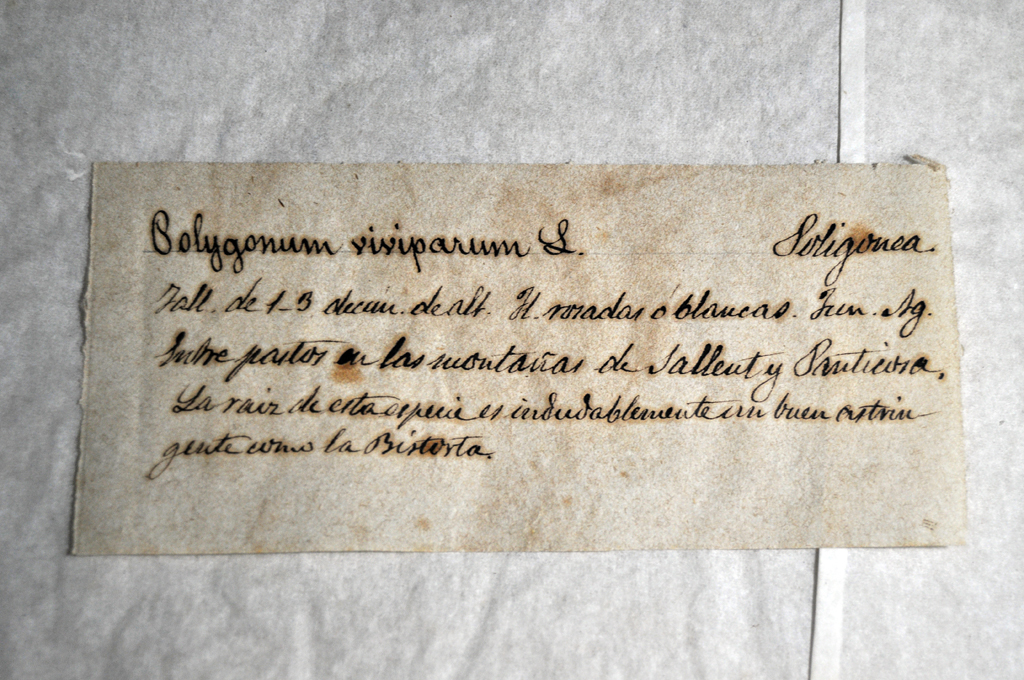 Polygonum viviparum L. Poligonea.
Tall. de 1-3 decim. de alt. Fl. rosadas ó blancas. Jun. Ag.
Entre pastos en las montañas de Sallent y Panticosa.
La raiz de esta especie es indudablemente un buen astrin-
gente como la Bistorta.